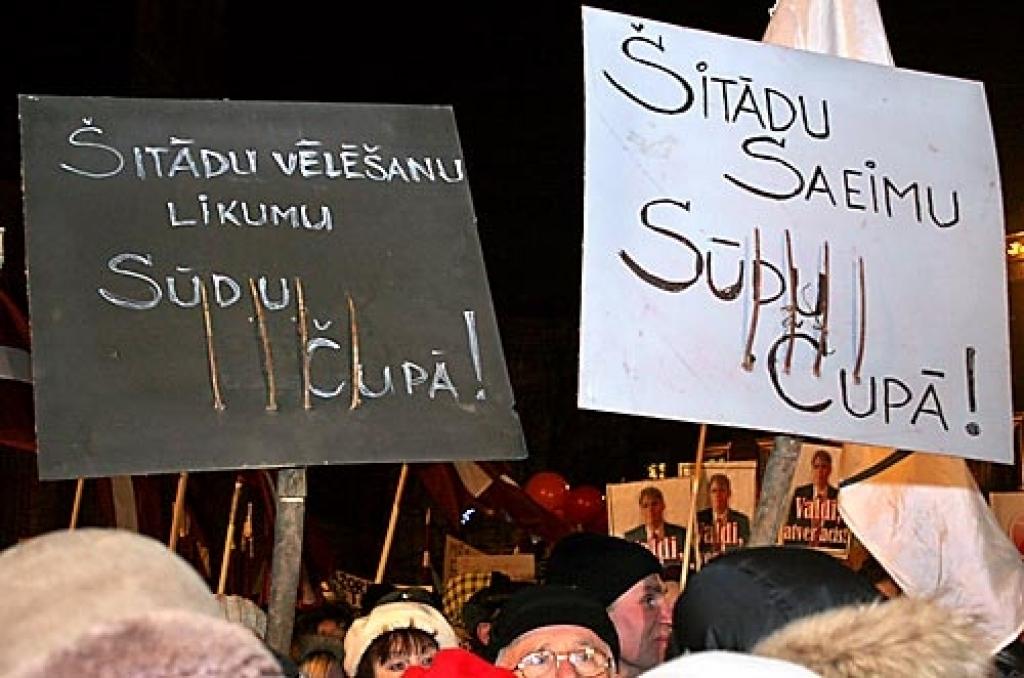 ŠITĀDU VĒLĒŠANU
LIKUMU
SŪDU
ČUPĀ!
ŠITĀDU
SAEIMU
SŪDU
ČUPĀ!
Valdi,
Valdi,
Valdi,
atver acis!